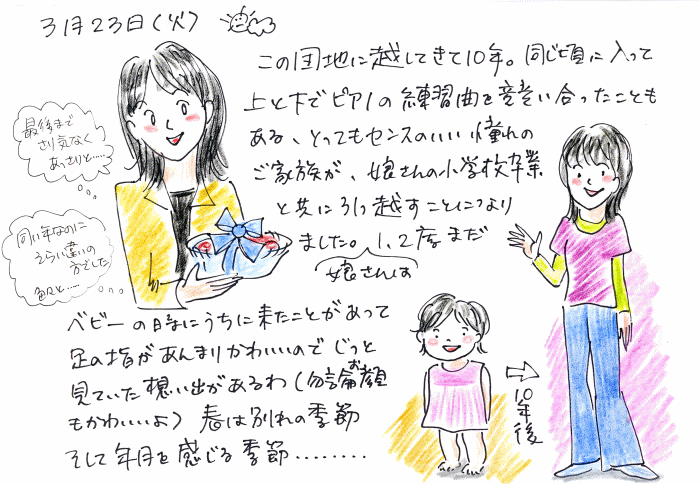 3月23日(火)
この団地に越してきて10年。同じ頃に入って
上と下でピアノの練習曲を競い合ったことも
ある、とってもセンスのいい憧れの
ご家族が、娘さんの小学校卒業
と共に引っ越すことになり
ました。1、2度まだ
娘さんは
ベビーの時にうちに来たことがあって
足の指があんまりかわいいのでじっと
見ていた想い出があるわ(勿論お顔
もかわいいよ)春は別れの季節
そして年月を感じる季節........
最後まで
さり気なく
あっさりと.....
同い年なのに
えらい違いの
方でした
色々と.....
10年後